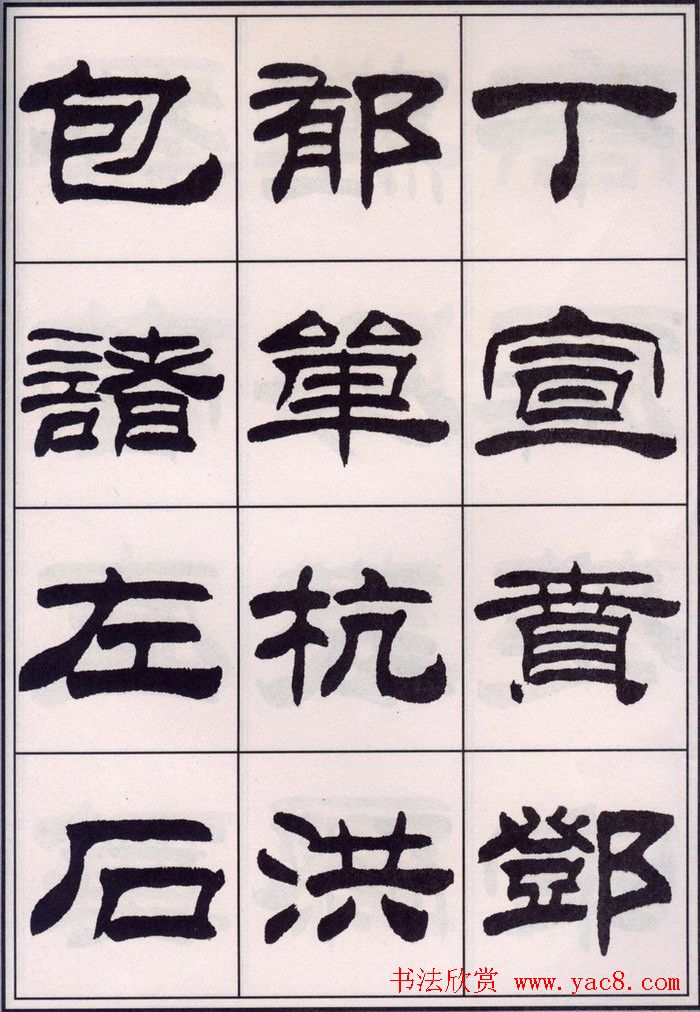 丁宣賁鄧
郁單杭洪
包諸左石
书法欣赏 www.yac8.com